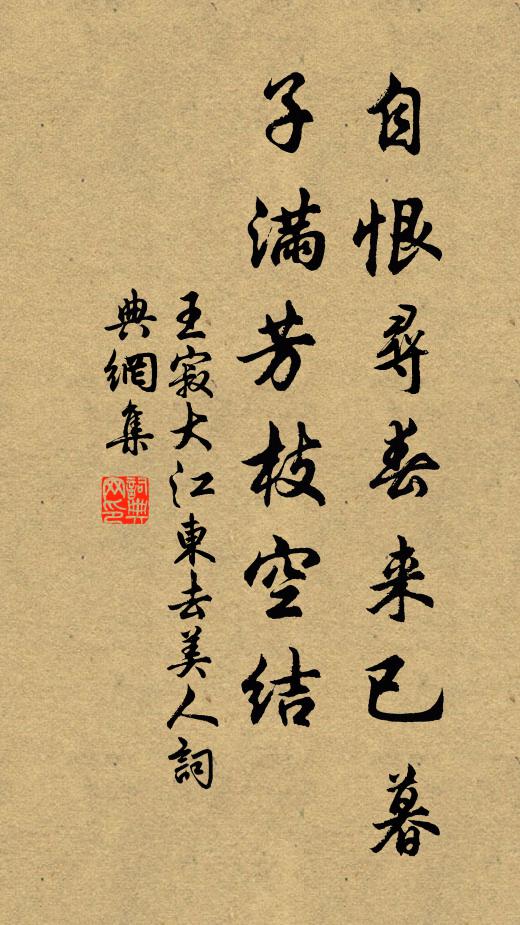 自恨尋春来已暮
子满芳枝空结
王寂大江東去美人詞
典網集
詞典网印